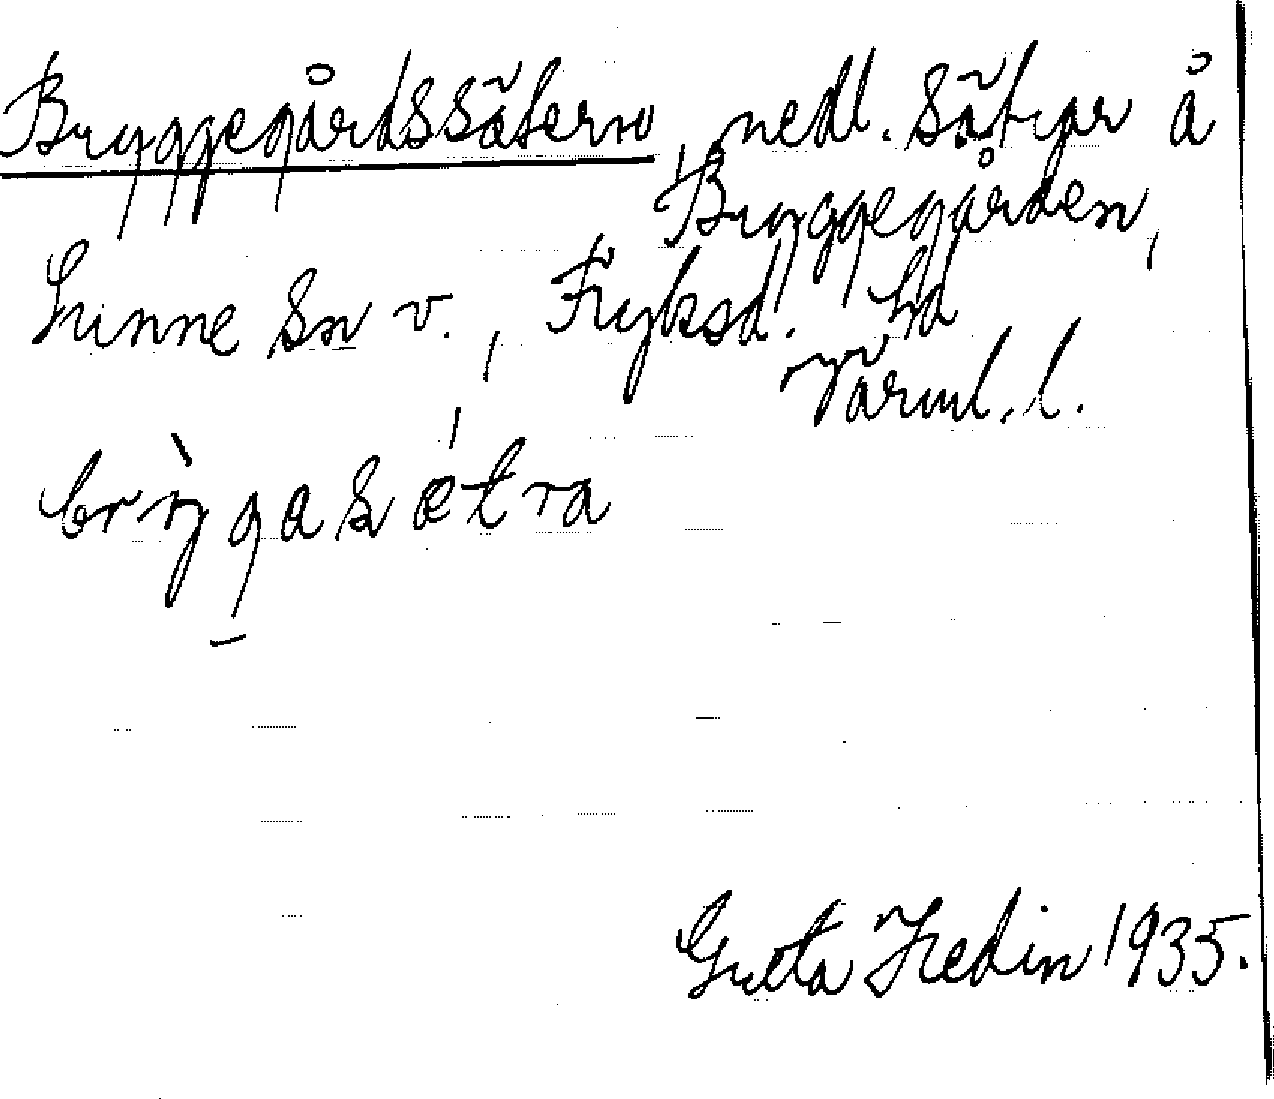 Bryggegårdssätern, nedl. sätrar å
Bryggegården,
Sunne sn v., Fryksd. hd
Värml. l.
brỳgasǽtra
Greta Hedin 1935.